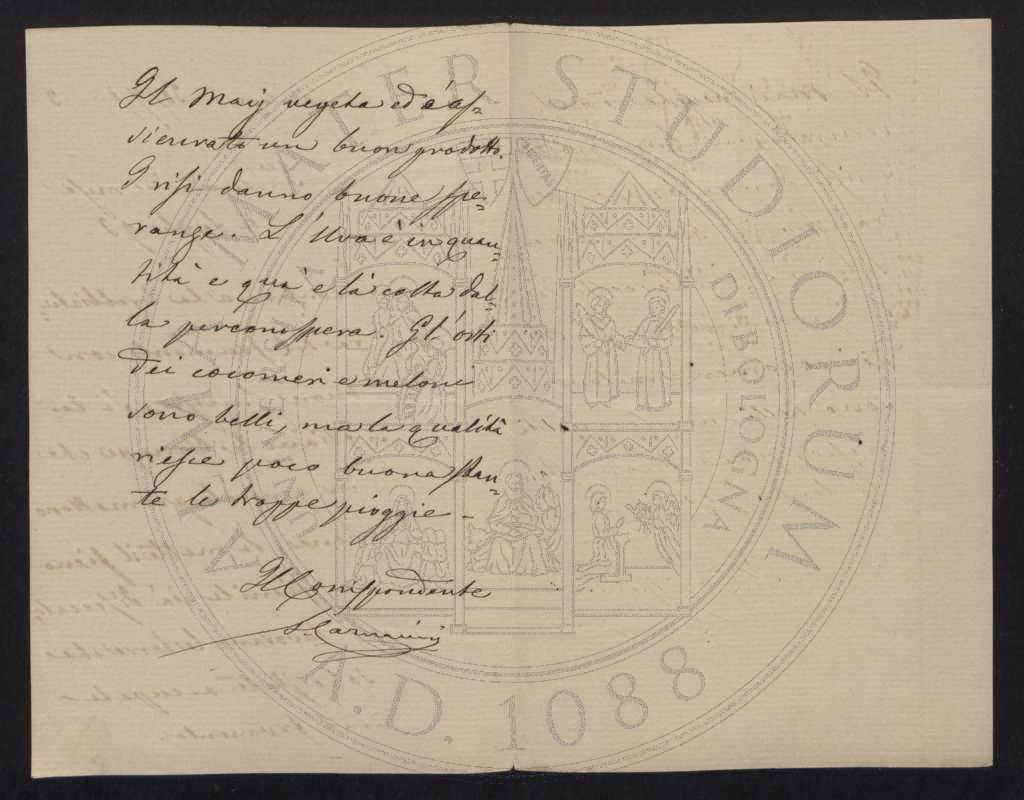 Il Maij vegeta ed è as=
sicurato un buon prodotto.
I risi danno buone spe=
ranze. L'Uva è in quan=
tità e quà e là colta dal
la peronospera. Gl'orti
dei cocomeri e meloni
sono belli, ma la qualità
riesce poco buona stan=
te le troppe pioggie –
Il Corrispondente
ALMA MATER STUDIORUM
A.D. 1088